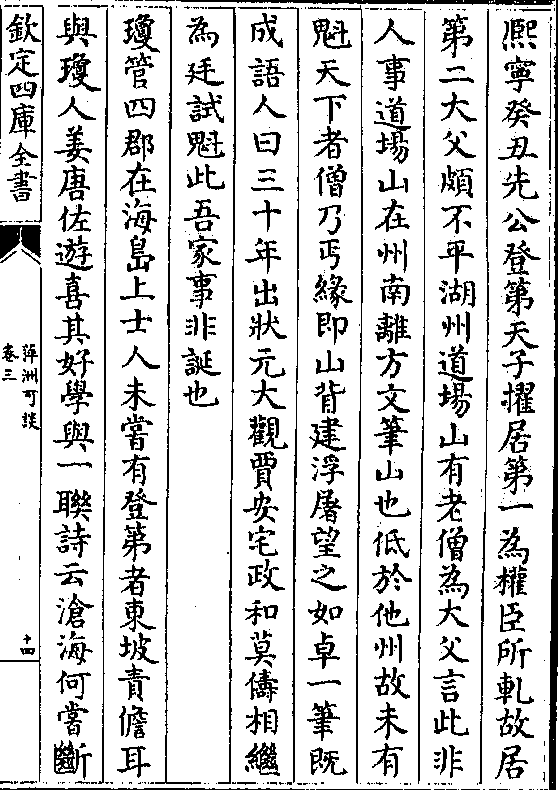 熈寧癸丑先公登第天子擢居第一為權臣所軋故居
第二大父頗不平湖州道場山有老僧為大父言此非
人事道場山在州南離方文筆山也低於他州故未有
魁天下者僧乃丐緣即山背建浮屠望之如卓一筆既
成語人曰三十年出狀元大觀賈安宅政和莫儔相繼
為廷試魁此吾家事非誕也
瓊管四郡在海島上士人未嘗有登第者東坡責儋耳
與瓊人姜唐佐遊喜其好學與一聯詩云滄海何嘗斷
欽定四庫全書
萍洲可談
卷三
十四